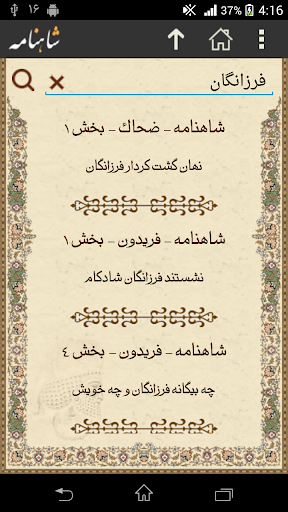 ۱۶ 37% 4:16
شاهنامه
فرزانگان
شاهنامه - ضحاک - بخش ۱
نهان گشت کردار فرزانگان
شاهنامه - فریدون - بخش ۱
نشستند فرزانگان شادکام
شاهنامه - فریدون - بخش ۴
چه بیگانه فرزانگان و چه خویش